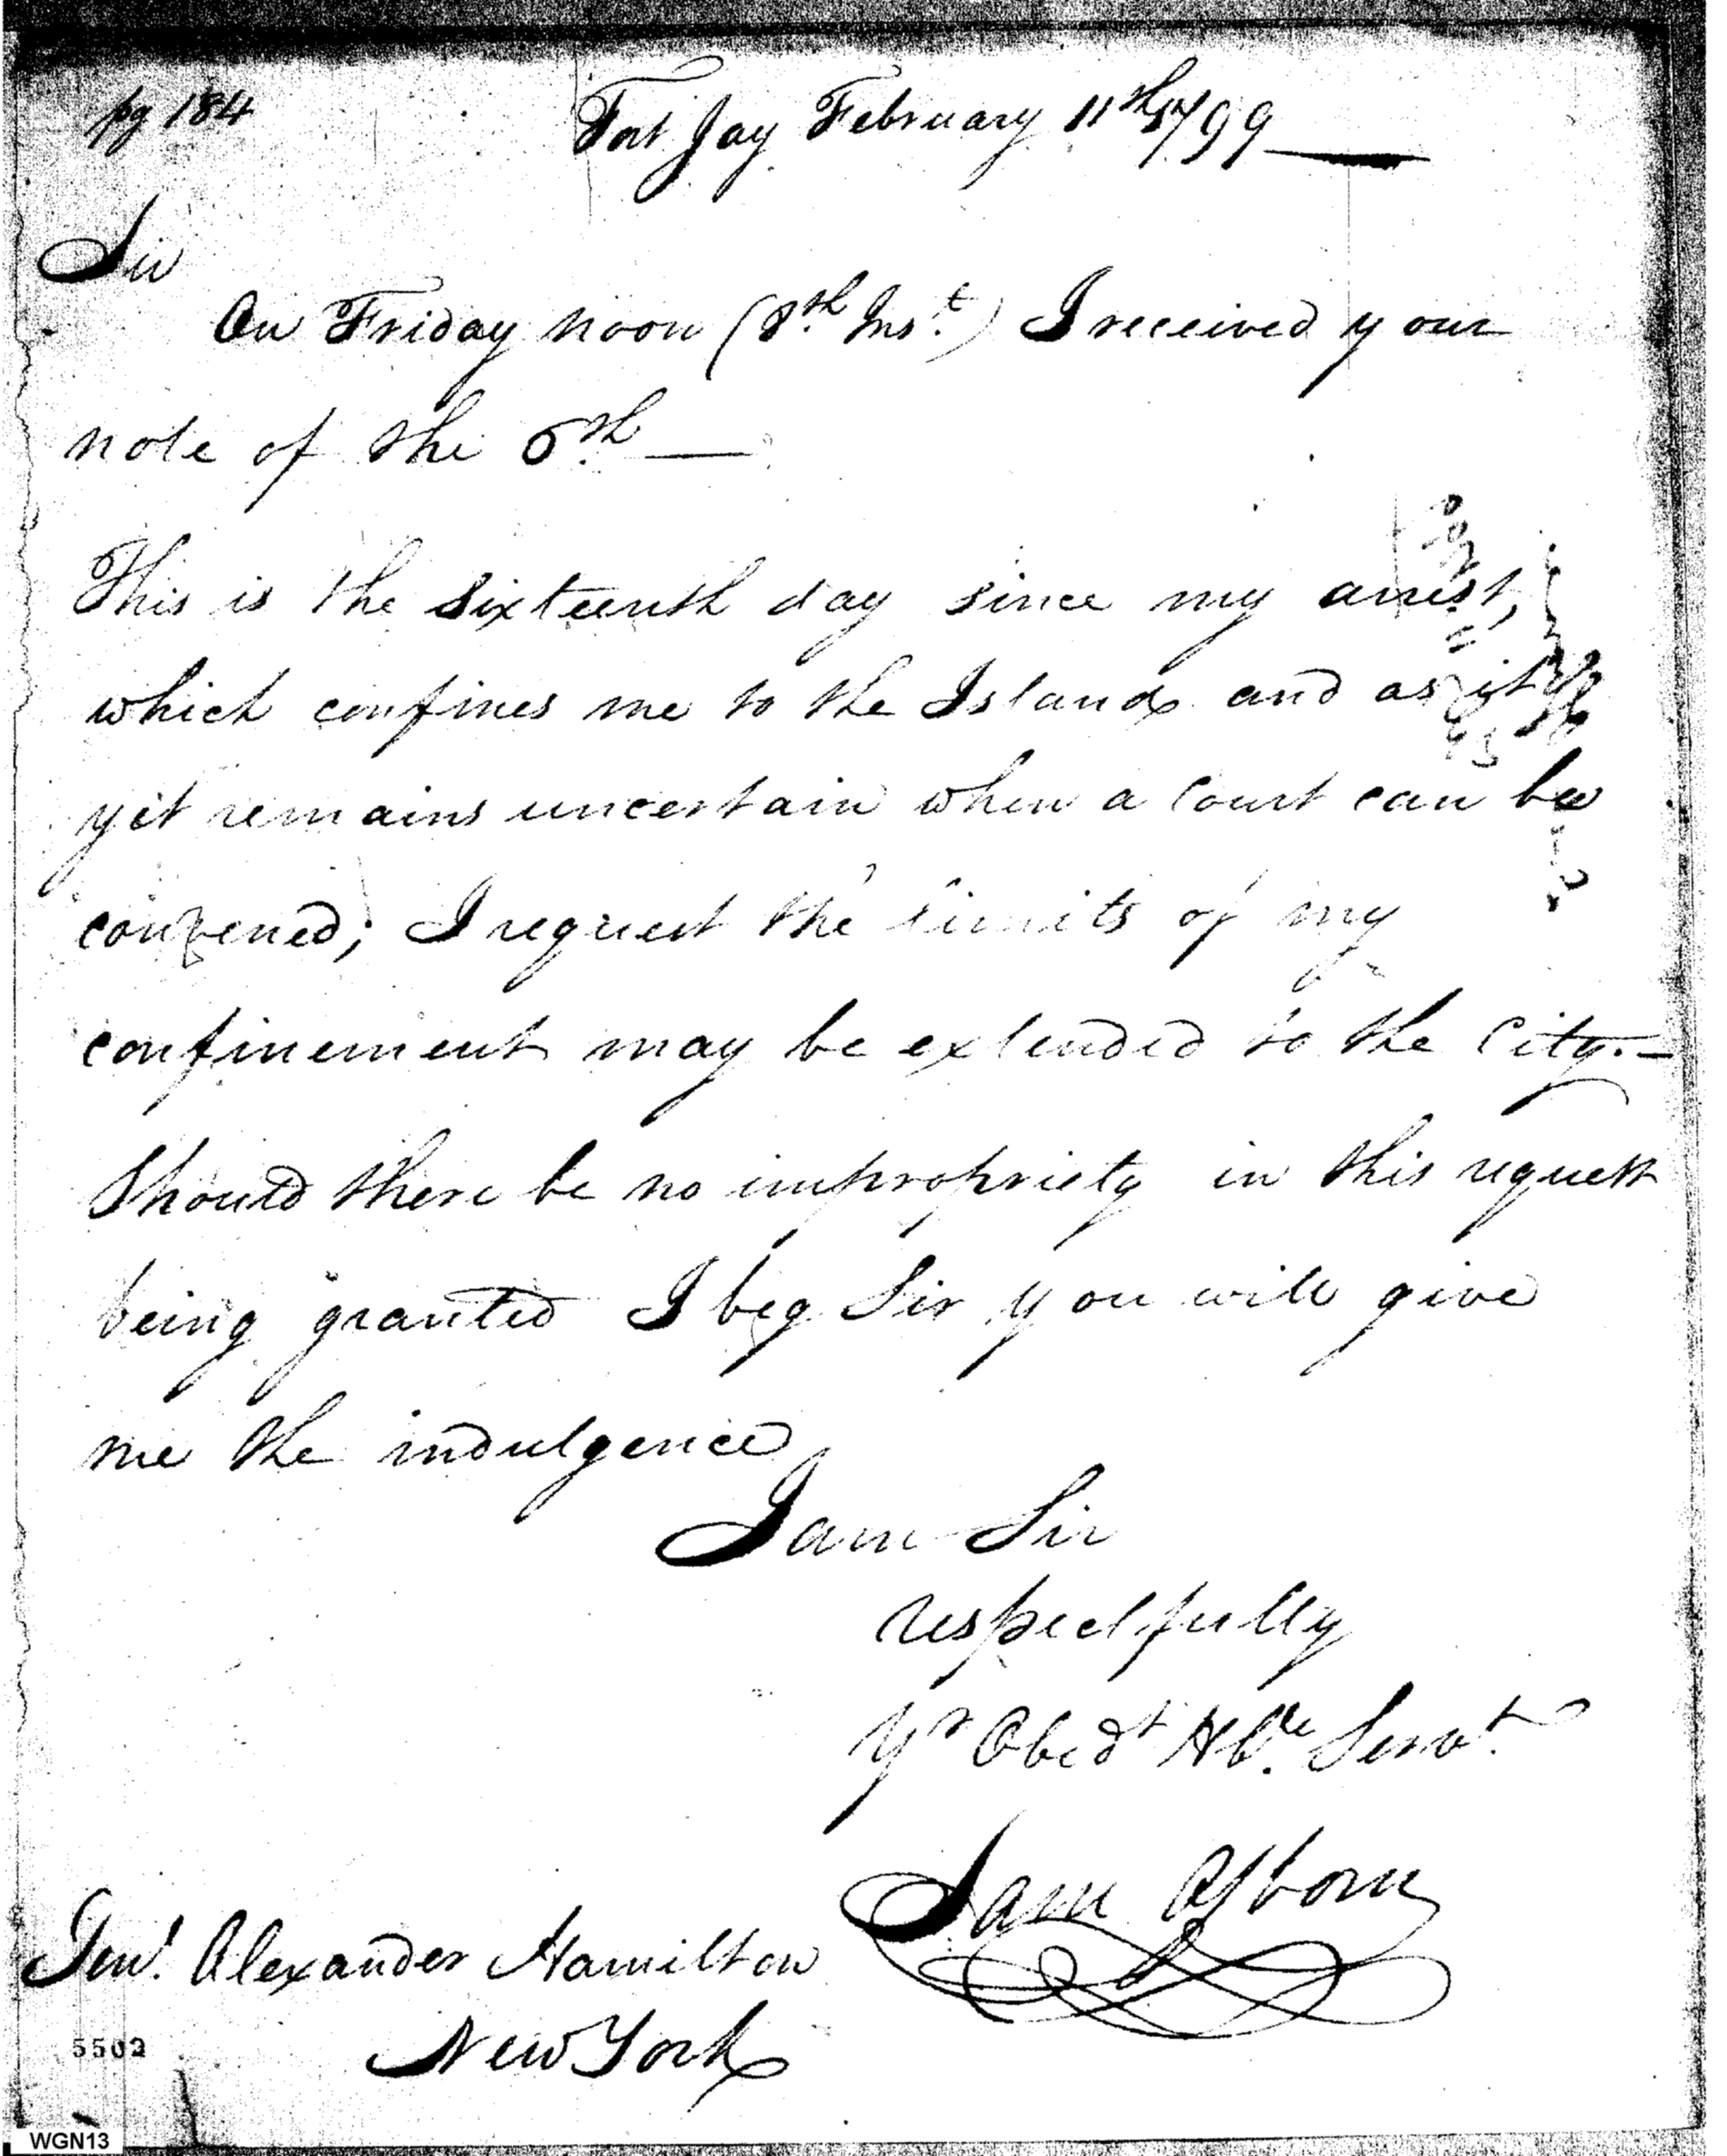 pg 184
Fort Jay February 11th 1799
Sir
On Friday noon (8th Inst.) I received your
note of the 6th —
This is the sixteenth day since my arrest,
which confines me to the Island and as it
yet remains uncertain when a Court can be
convened; I request the limits of my
confinement may be extended to the City. —
Should there be no impropriety in this request
being granted I beg Sir you will give
me the indulgence
I am Sir
respectfully
Yr Obedt Hble. Servt.
Sam Osborn
Genl. Alexander Hamilton
New York
5502
WGN13